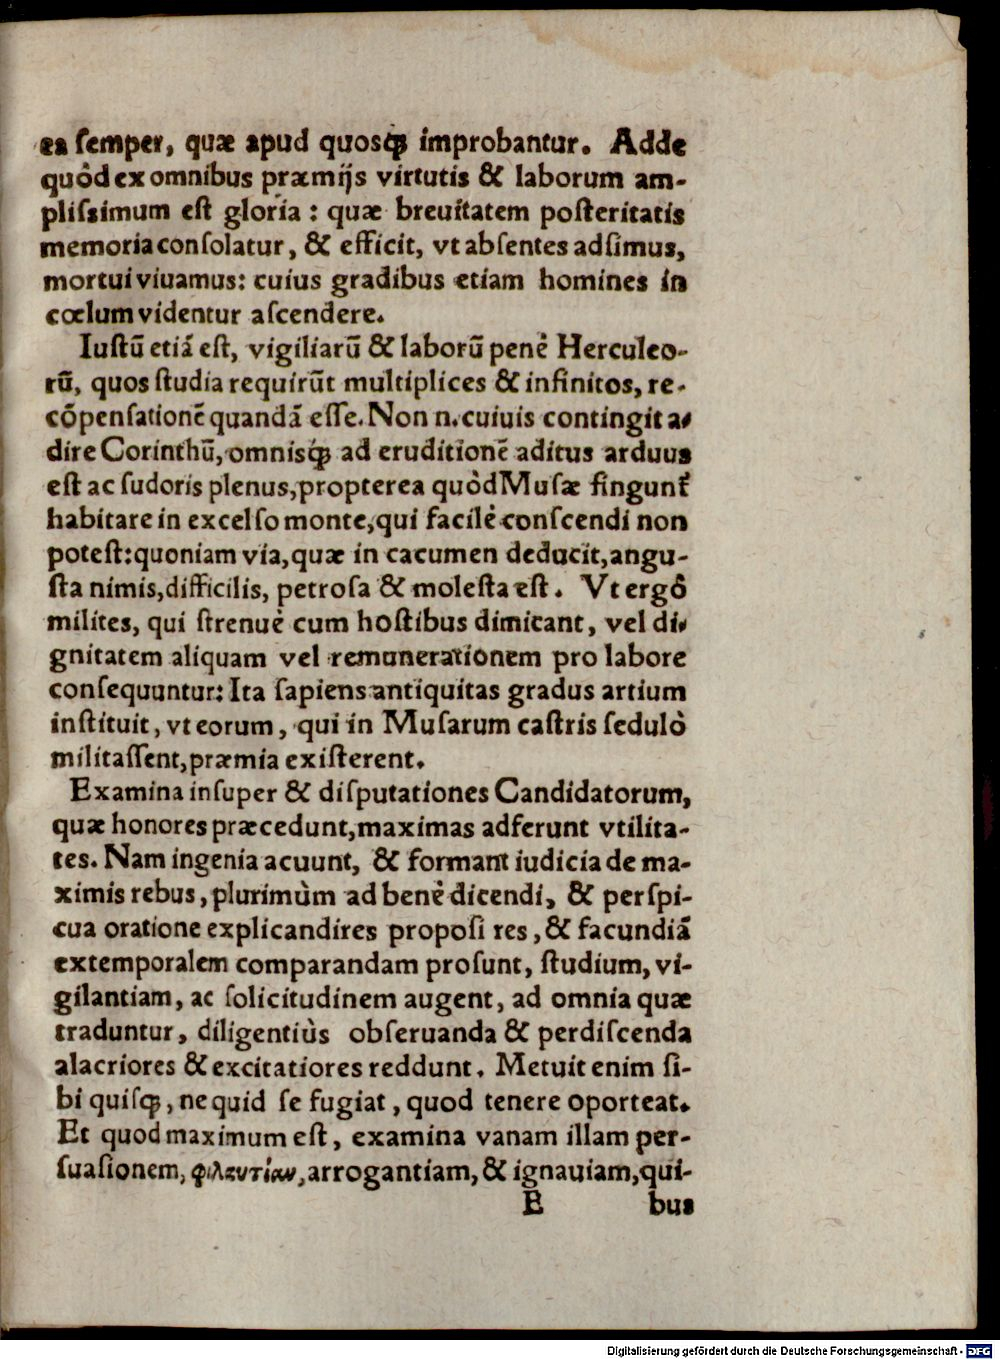 ea ſemper, quæ apud quosq́ꝫ improbantur. Adde
quòd ex omnibus præmijs virtutis & laborum am-
pliſsimum eſt gloria : quæ breuitatem poſteritatis
memoria conſolatur, & efficit, vt abſentes adſimus,
mortui viuamus: cuius gradibus etiam homines in
cœlum videntur aſcendere.
Iuſtū etiā eſt, vigiliarū & laborū penè Herculeo-
rū, quos ſtudia requirūt multiplices & infinitos, re-
cōpenſationē quandā eſſe. Non n. cuiuis contingit a-
dire Corinthū, omnisq́ꝫ ad eruditionē aditus arduus
eſt ac ſudoris plenus, propterea quòd Muſæ fingunt᷑
habitare in excelſo monte, qui facilè conſcendi non
poteſt: quoniam via, quæ in cacumen deducit, angu-
ſta nimis, difficilis, petroſa & moleſta eſt. Vt ergò
milites, qui ſtrenuè cum hoſtibus dimicant, vel di-
gnitatem aliquam vel remunerationem pro labore
conſequuntur: Ita ſapiens antiquitas gradus artium
inſtituit, vt eorum, qui in Muſarum caſtris ſedulò
militaſſent, præmia exiſterent.
Examina inſuper & diſputationes Candidatorum,
quæ honores præcedunt, maximas adferunt vtilita-
tes. Nam ingenia acuunt, & formant iudicia de ma-
ximis rebus, plurimùm ad benè dicendi, & perſpi-
cua oratione explicandi res propoſi res, & facundiā
extemporalem comparandam proſunt, ſtudium, vi-
gilantiam, ac ſolicitudinem augent, ad omnia quæ
traduntur, diligentiùs obſeruanda & perdiſcenda
alacriores & excitatiores reddunt. Metuit enim ſi-
bi quiſqꝫ, ne quid ſe fugiat, quod tenere oporteat.
Et quod maximum eſt, examina vanam illam per-
ſuaſionem, φιλαυτίαν, arrogantiam, & ignauiam, qui-
E bus
Digitalisierung gefördert durch die Deutsche Forschungsgemeinschaft - DFG